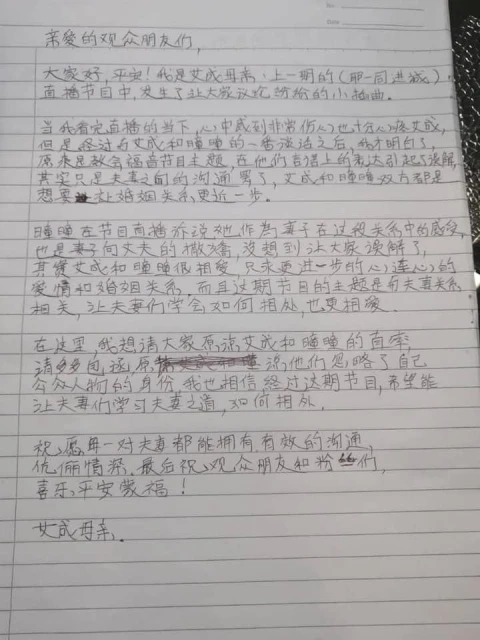 亲爱的观众朋友们,
大家好,平安!我是艾成母亲。上一期的(那一同进城)
直播节目中,发生了让大家议论纷纷的小插曲。
当我看完直播的当下,心中感到非常伤心也十分心疼艾成,
但是经过与艾成和瞳瞳的一番谈话之后,我才明白了,
原来是教会福音节目主题,在他们言语上的表达引起了误解,
其实只是夫妻之间的沟通罢了,艾成和瞳瞳双方都是
想要让婚姻关系更近一步。
瞳瞳在节目直播诉说她作为妻子在这段关系中的感受,
也是妻子向丈夫的撒娇,没想到让大家误解了,
其实艾成和瞳瞳很相爱,只求更进一步的心连心的
爱情和婚姻关系,而且这期节目的主题是与夫妻关系
相关,让夫妻们学会如何相处,也更相爱。
在这里,我想请大家原谅艾成和瞳瞳的直率
请多多包涵,原谅他们忽略了自己
公众人物的身份,我也相信经过这期节目,希望能
让夫妻们学习夫妻之道,如何相处。
祝愿每一对夫妻都能拥有有效的沟通,
伉俪情深,最后祝观众朋友和粉丝们,
喜乐平安蒙福!
艾成母亲。